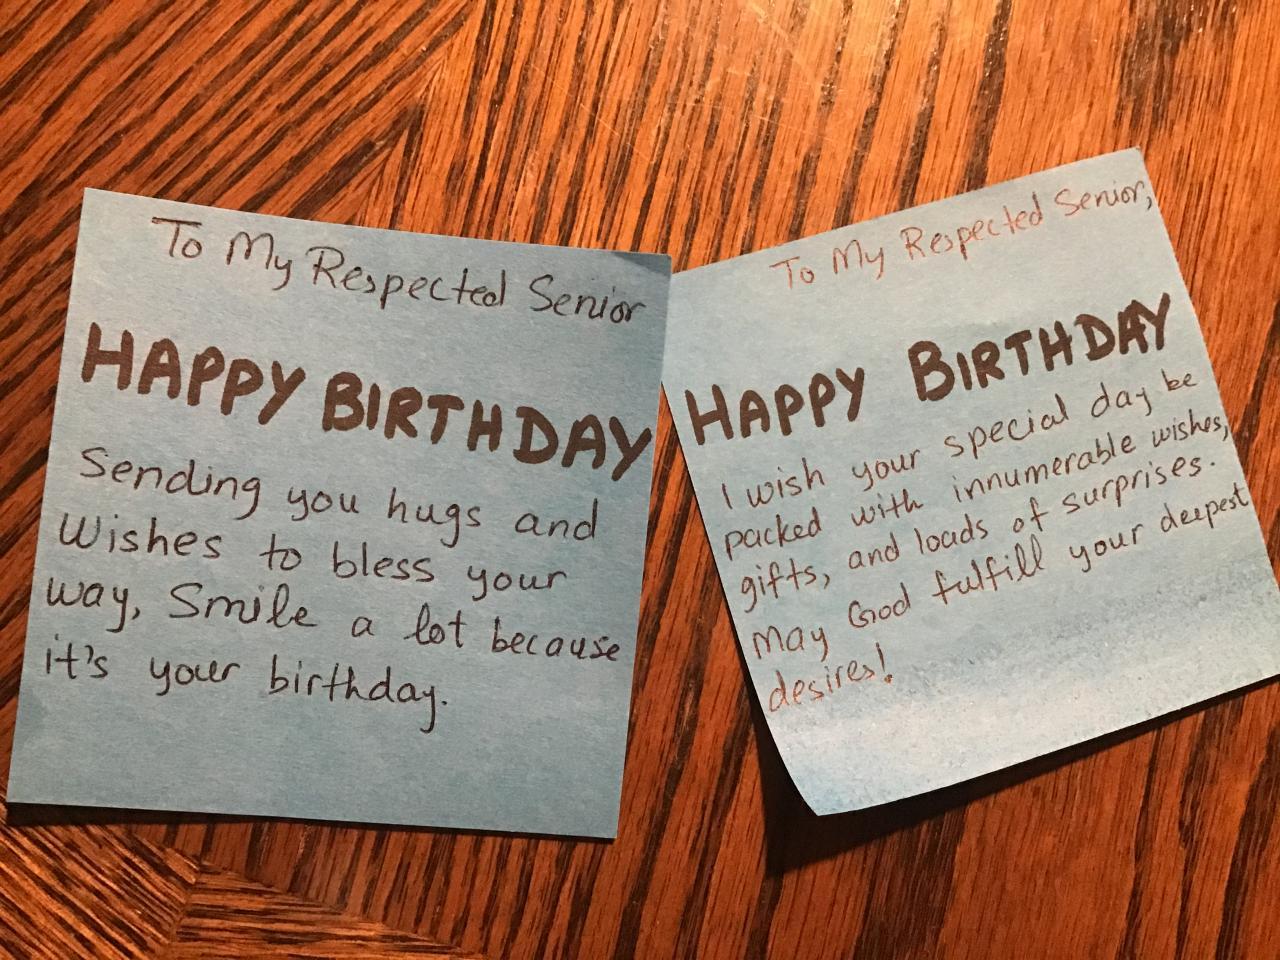 To My Respected Senior
HAPPY BIRTHDAY
Sending you hugs and
Wishes to bless your
way, Smile a lot because
it's your birthday.
To My Respected Senior,
HAPPY BIRTHDAY
I wish your special day be
packed with innumerable wishes,
gifts, and loads of surprises.
May God fulfill your deepest
desires!